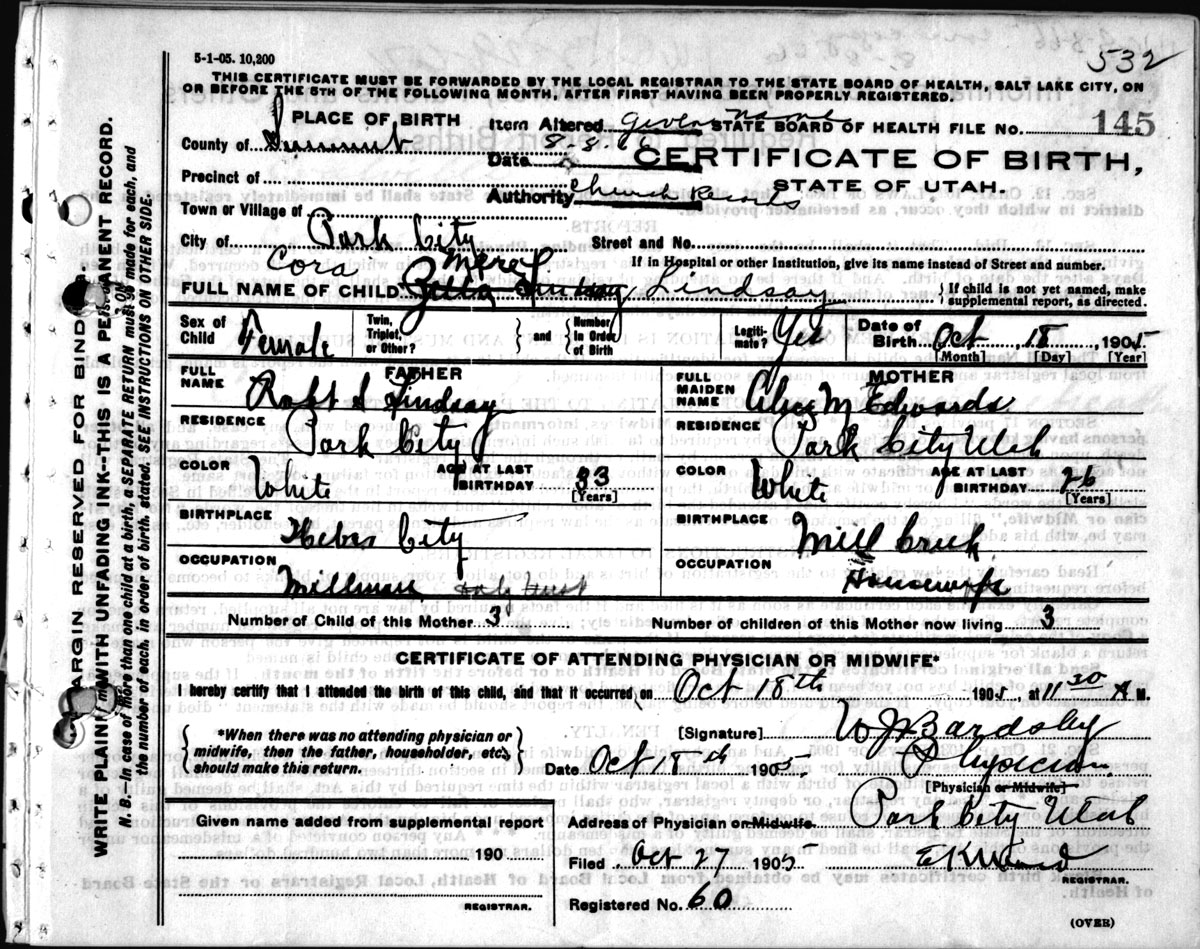 532
5-1-05. 10,200
THIS CERTIFICATE MUST BE FORWARDED BY THE LOCAL REGISTRAR TO THE STATE BOARD OF HEALTH, SALT LAKE CITY, ON
OR BEFORE THE 5TH OF THE FOLLOWING MONTH, AFTER FIRST HAVING BEEN PROPERLY REGISTERED.
PLACE OF BIRTH Item Altered Given Name STATE BOARD OF HEALTH FILE NO. 145
County of Summit Date 8-8-66 CERTIFICATE OF BIRTH,
Precinct of Authority Church Records STATE OF UTAH.
Town or Village of
City of Park City Street and No.
Cora Merel If in Hospital or other Institution, give its name instead of Street and number.
FULL NAME OF CHILD Zella Lindsay Lindsay { If child is not yet named, make supplemental report, as directed.
Sex of Child Female Twin, Triplet, or Other? } and { Number in Order of Birth Legiti- mate? Yes Date of Birth Oct 18 1905
[Month] [Day] [Year]
FATHER MOTHER
FULL NAME Robt S Lindsay FULL MAIDEN NAME Alice M Edwards
RESIDENCE Park City RESIDENCE Park City Utah
COLOR White AGE AT LAST BIRTHDAY 33 [Years] COLOR White AGE AT LAST BIRTHDAY 26 [Years]
BIRTHPLACE Heber City BIRTHPLACE Mill Creek
OCCUPATION Millman OCCUPATION Housewife
Number of Child of this Mother 3 Number of children of this Mother now living 3
CERTIFICATE OF ATTENDING PHYSICIAN OR MIDWIFE*
I hereby certify that I attended the birth of this child, and that it occurred on Oct 18th 1905 at 11 30 A M.
{ *When there was no attending physician or midwife, then the father, householder, etc., should make this return. } [Signature] W J Bardsley
Physician
Date Oct 18th 1905. [Physician or Midwife]
Given name added from supplemental report Address of Physician or Midwife. Park City Utah
190 Filed Oct 27 1905 E K Ward
REGISTRAR. REGISTRAR.
Registered No. 60
(OVER)
MARGIN RESERVED FOR BINDING.
WRITE PLAINLY WITH UNFADING INK--THIS IS A PERMANENT RECORD.
N. B.—In case of more than one child at a birth, a SEPARATE RETURN must be made for each, and
the number of each, in order of birth, stated. SEE INSTRUCTIONS ON OTHER SIDE.